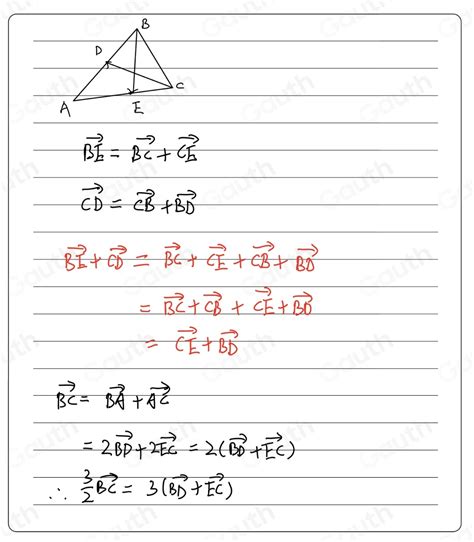 B
D
C
A
E
$\overrightarrow{BE} = \overrightarrow{BC} + \overrightarrow{CE}$
$\overrightarrow{CD} = \overrightarrow{CB} + \overrightarrow{BD}$
$\overrightarrow{BE} + \overrightarrow{CD} = \overrightarrow{BC} + \overrightarrow{CE} + \overrightarrow{CB} + \overrightarrow{BD}$
$= \overrightarrow{BC} + \overrightarrow{CB} + \overrightarrow{CE} + \overrightarrow{BD}$
$= \overrightarrow{CE} + \overrightarrow{BD}$
$\overrightarrow{BC} = \overrightarrow{BA} + \overrightarrow{AC}$
$= 2\overrightarrow{BD} + 2\overrightarrow{EC} = 2(\overrightarrow{BD} + \overrightarrow{EC})$
$\therefore \frac{3}{2}\overrightarrow{BC} = 3(\overrightarrow{BD} + \overrightarrow{EC})$
Gauth